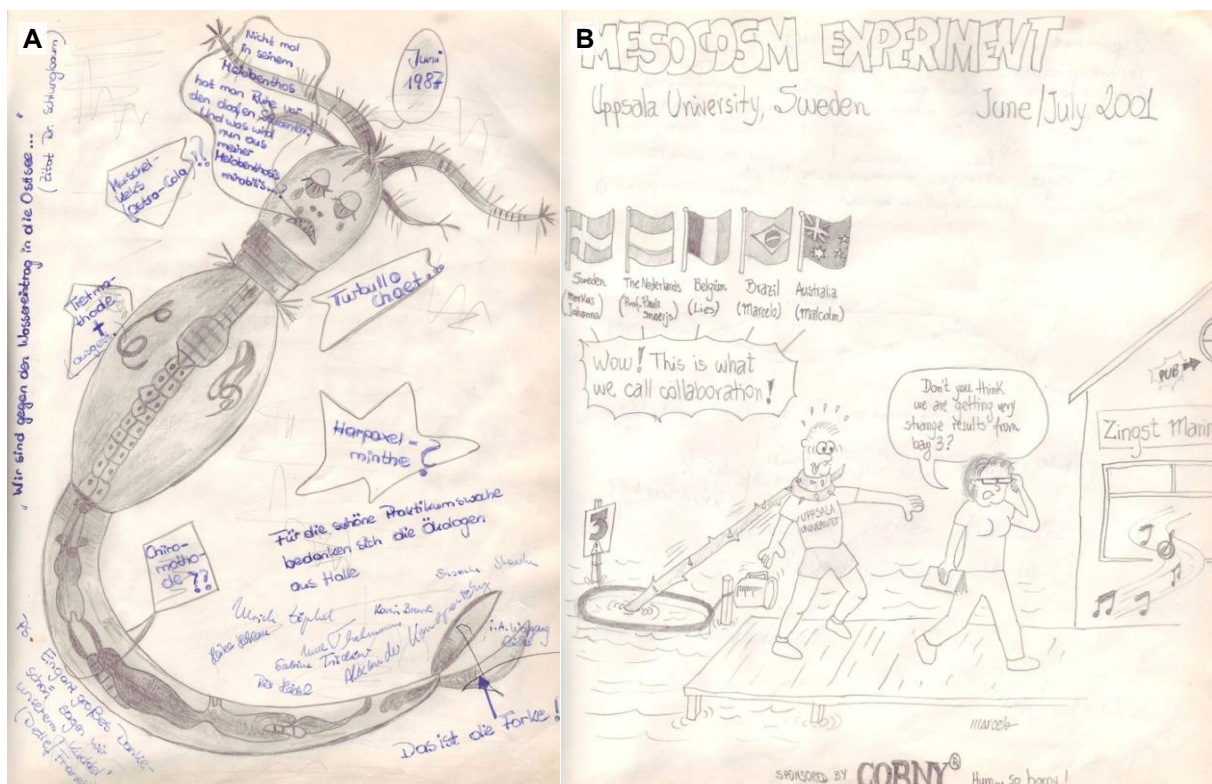 A
"Wir sind gegen den Wassereintrag in die Ostsee..."
(Zitat Dr. Schlungbaum)
Nicht mal
in seinem
Meiobenthos
hat man Ruhe vor
den doofen
Und was wird
nun aus
meiner
Meiobenthosis
mirabilis...?
Juni
1987
Muschel-
krebs
(Ostra-Cola)
?!
Turbullo
chaet...
Trema-
thode
†
Harpaxel-
minthe ?
Chiro-
motho-
de ??
Für die schöne Praktikumswoche
bedanken sich die Ökologen
aus Halle
Ulrich
Karin
Sabine
i.A. Wolfgang
Ein ganz großes Danke-
schön sagen wir
unserem "Kuckel"
Das ist die Forke!
B
MESOCOSM EXPERIMENT
Uppsala University, Sweden June/July 2001
Sweden
(Markus
Johanna)
The Nederlands
(Prof. Pauli
Snoeijs)
Belgium
(Lies)
Brazil
(Marcelo)
Australia
(Malcolm)
Wow! This is what
we call collaboration!
Don't you think
we are getting very
strange results from
bag 3?
PUB
Zingst Marin
3
UPPSALA
UNIVERSITET
marcelo
SPONSORED BY CORNY® Hum... so horny!